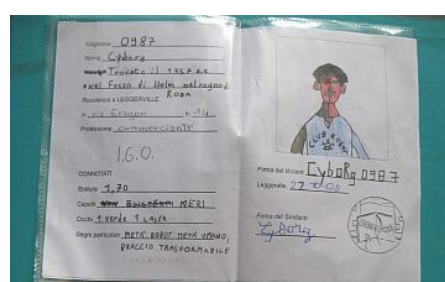 Cognome 0987
Nome Cyborg
Trovato il 1357 a.c.
nel Fosso di Helm nel regno di
Roan
Residenza a LEGGERVILLE
in via Eragon n. 14
Professione commerciante
I.G.O.
CONNOTATI
Statura 1,70
Capelli NERI
Occhi 1 verde 1 LASER
Segni particolari METÀ ROBOT METÀ UMANO,
BRACCIO TRASFORMABILE
CLUB ROBOT
Firma del titolare CyboRg 0987
Leggerville,
Firma del Sindaco
Cyborg